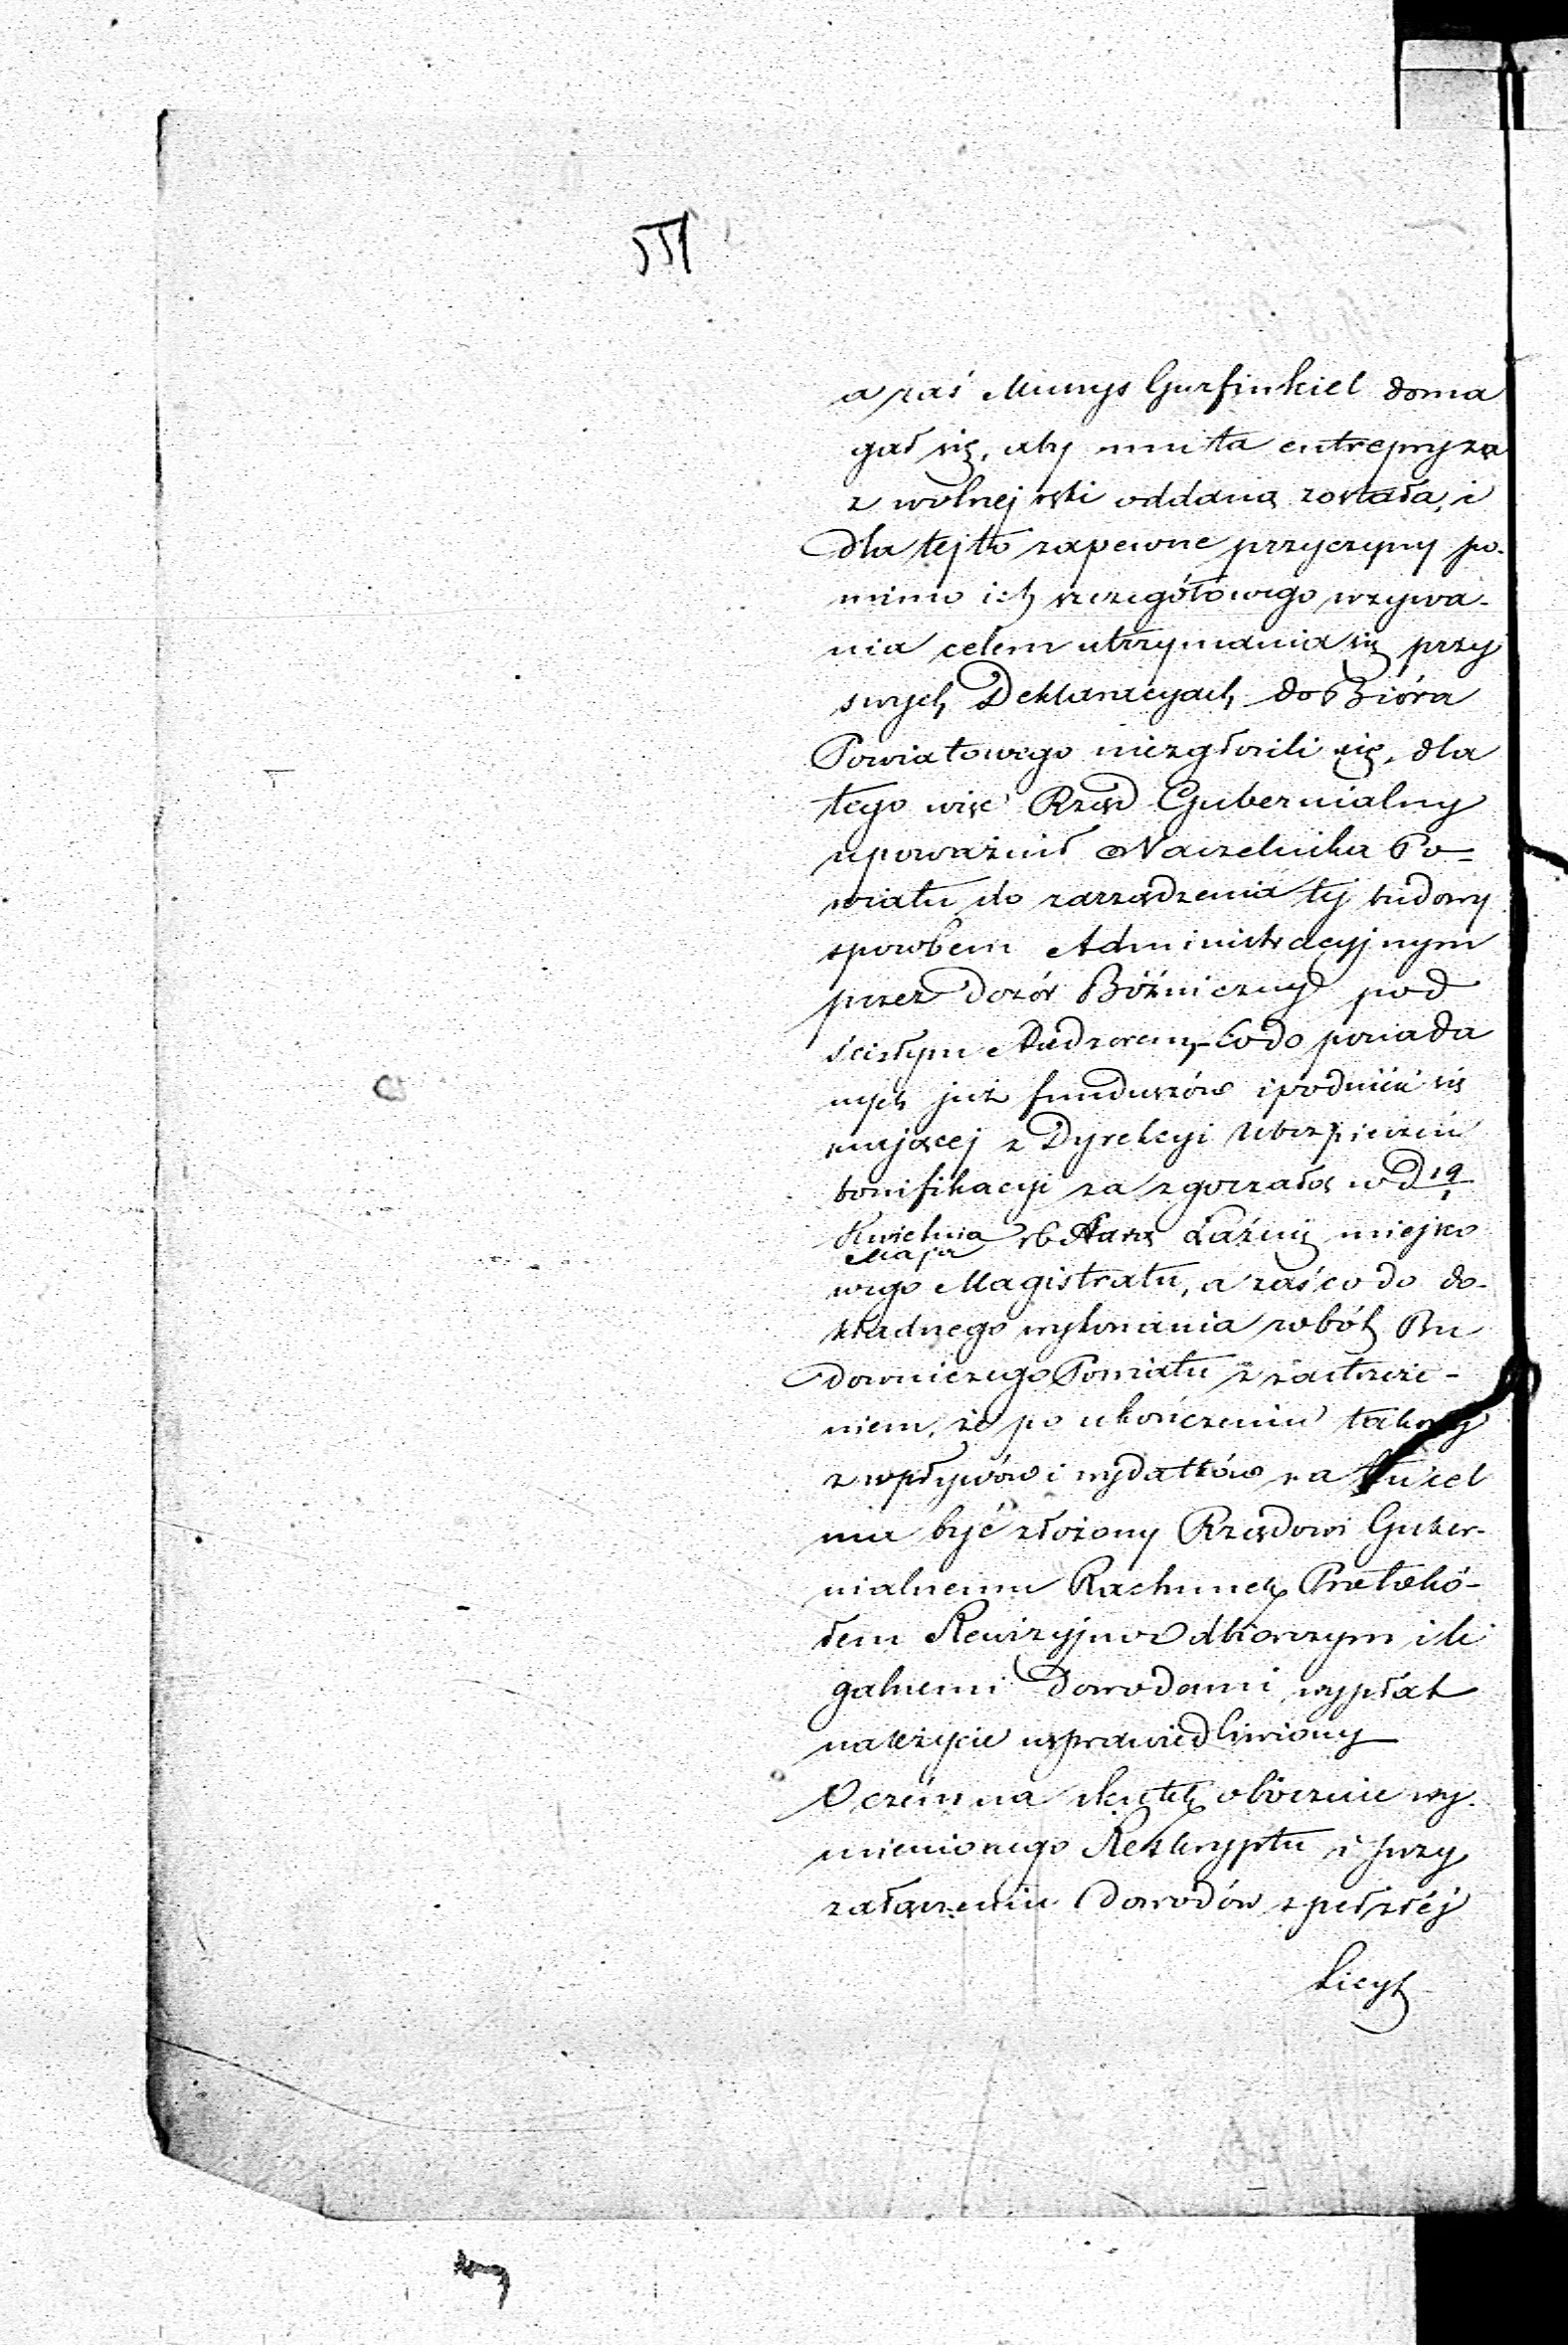 551
a zaś Munys Gurfinkiel doma
gał się, aby mu ta entrepryza
z wolnej ręki oddaną została, i
dla tej to zapewne przyczyny po-
mimo ich szczegółowego wzywa-
nia celem utrzymania się przy
swych Deklaracyach do Bióra
Powiatowego niezgłosili się, dla
tego więc Rząd Gubernialny
upoważnił Naczelnika Po=
wiatu do zarządzenia tej budowy
sposobem Administracyjnym
przez Dozór Bóżniczny pod
ścisłym Nadzorem, co do posiada
nych już funduszów i podnieść się
mającej z Dyrekcyi Ubezpieczeń
bonifikacyi za zgorzałą w d 19/1
Kwietnia/Maja rb Łaźnię miejsco
wego Magistratu, a zaś co do do-
kładnego wykonania robót Bu
downiczego Powiatu z zastrzeże-
niem, że po ukończeniu takowej
z wpływów i wydatków na tu cel
ma być złożony Rządowi Guber-
nialnemu Rachunek Protokó-
łem Rewizyjno Odbiorczym i le
galnemi Dowodami wypłat
należycie usprawiedliwiony
O czém na skutek obocznie wy-
mienionego Reskryptu i przy
załączeniu Dowodów spełzłéj
Licyt